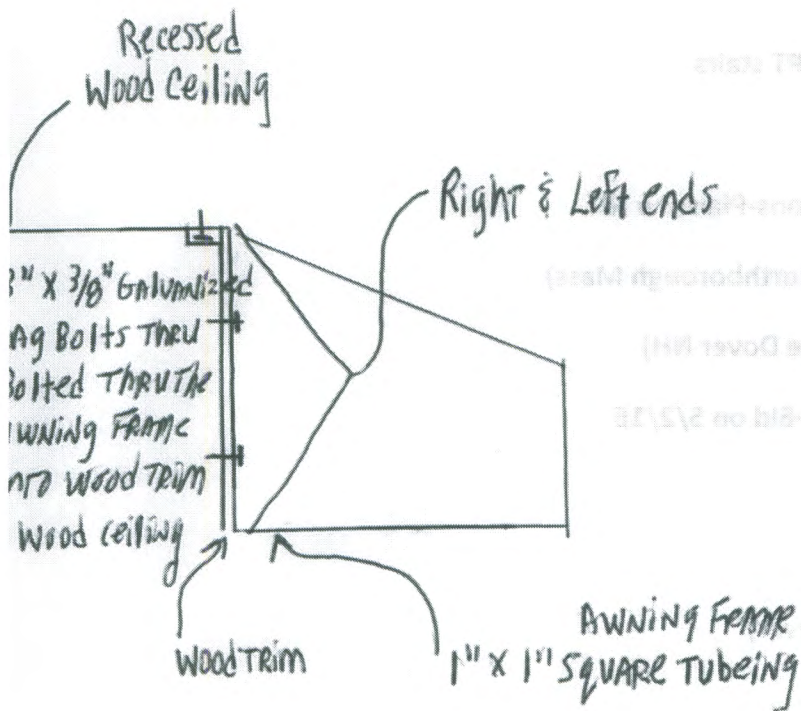 Recessed
Wood Ceiling
Right & Left ends
3" X 3/8" Galvanized
Lag Bolts Thru
Bolted Thru The
Awning Frame
nto Wood Trim
Wood Ceiling
Wood Trim
Awning Frame
1" X 1" Square Tubeing
PT stairs
orthborough Mass)
e Dover NH)